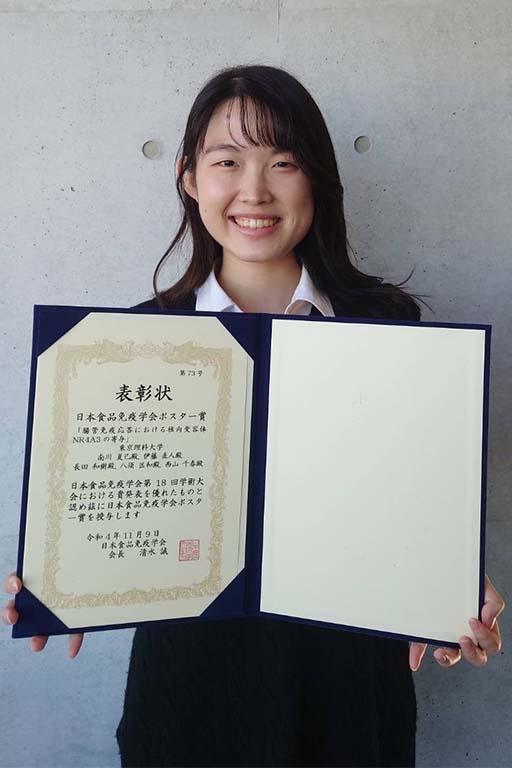 第73号
表彰状
日本食品免疫学会ポスター賞
「腸管免疫応答における核内受容体
NR4A3の寄与」
東京理科大学
南川 夏己殿, 伊藤 直人殿
長田 和樹殿, 八須 匡和殿, 西山 千春殿
日本食品免疫学会第18回学術大
会における貴発表を優れたものと
認め茲に日本食品免疫学会ポスタ
ー賞を授与します
令和4年11月9日
日本食品免疫学会
会長 清水 誠